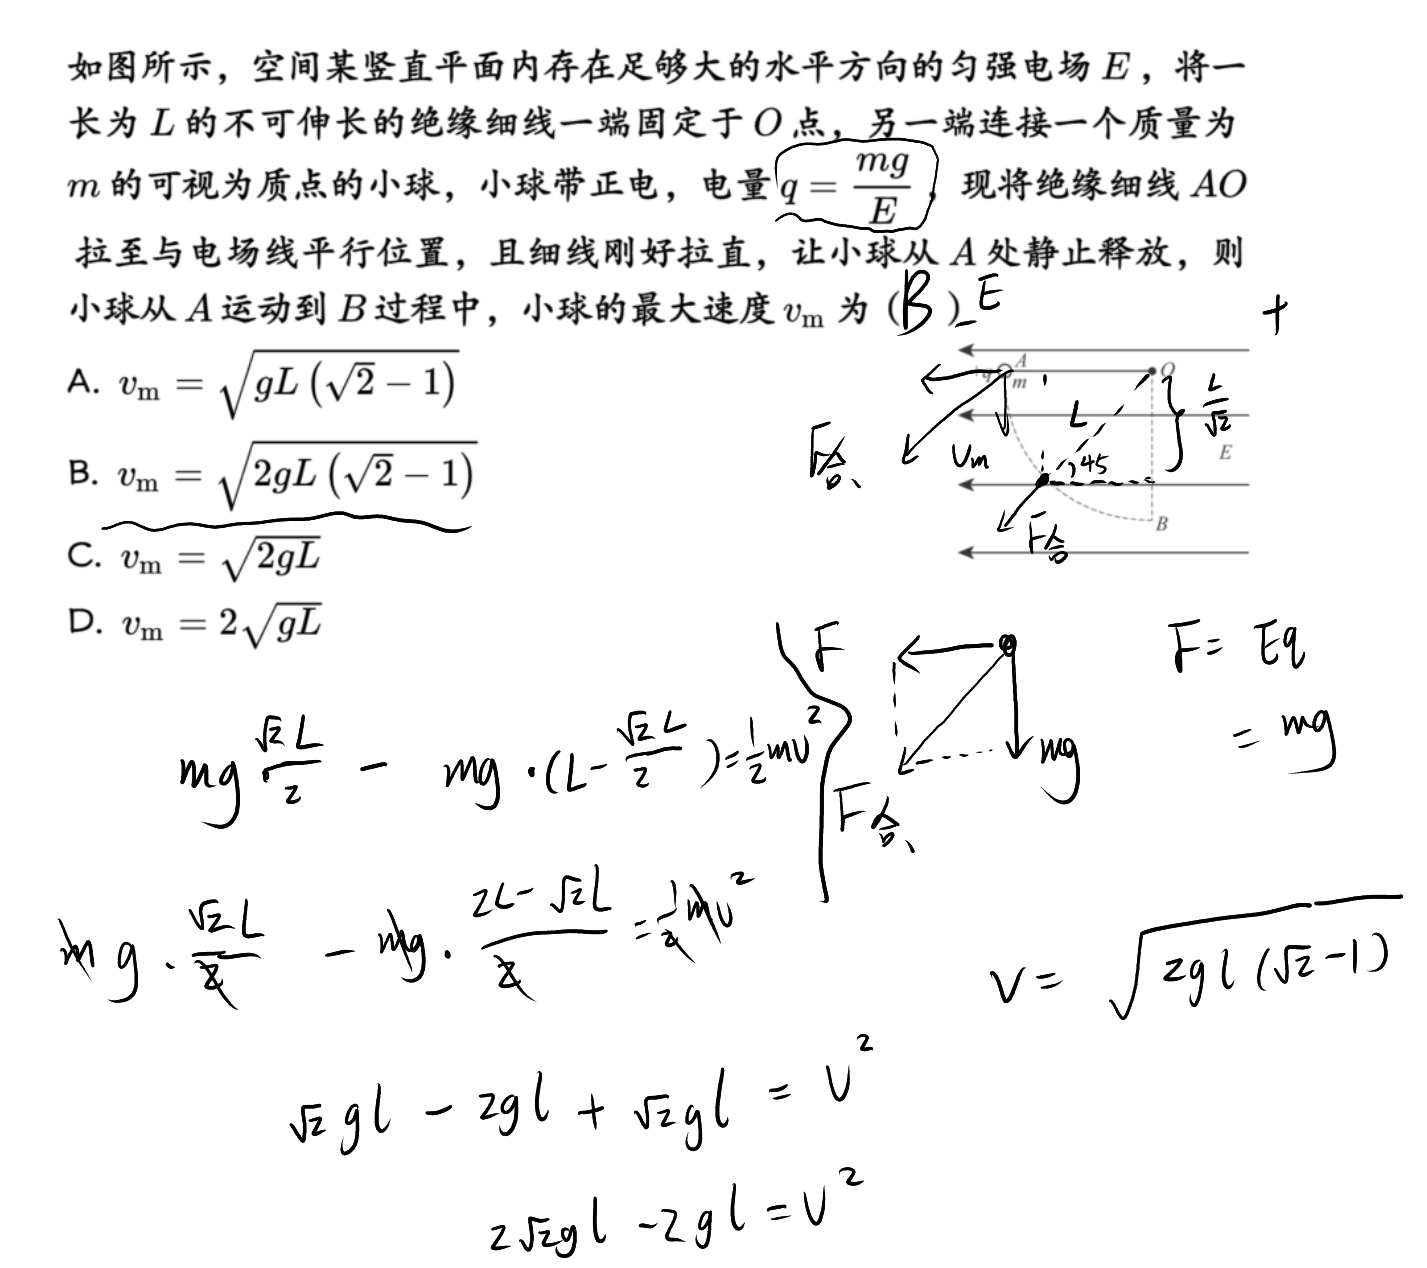 如图所示，空间某竖直平面内存在足够大的水平方向的匀强电场 E ，将一
长为 L 的不可伸长的绝缘细线一端固定于 O 点，另一端连接一个质量为
m 的可视为质点的小球，小球带正电，电量 q = mg/E ，现将绝缘细线 AO
拉至与电场线平行位置，且细线刚好拉直，让小球从 A 处静止释放，则
小球从 A 运动到 B 过程中，小球的最大速度 vₘ 为 (B)
− E +
A. vₘ = √(gL(√2 − 1))
B. vₘ = √(2gL(√2 − 1))
C. vₘ = √(2gL)
D. vₘ = 2√(gL)
q A m O
L
L/√2
E
F合
Vm
45
F合
B
F
mg
F合
F = Eq
= mg
mg √2L/2 − mg·(L − √2L/2) = 1/2 mv²
mg·√2L/2 − mg·(2L − √2L)/2 = 1/2 mv²
V = √(2gl(√2−1))
√2gl − 2gl + √2gl = V²
2√2gl − 2gl = V²